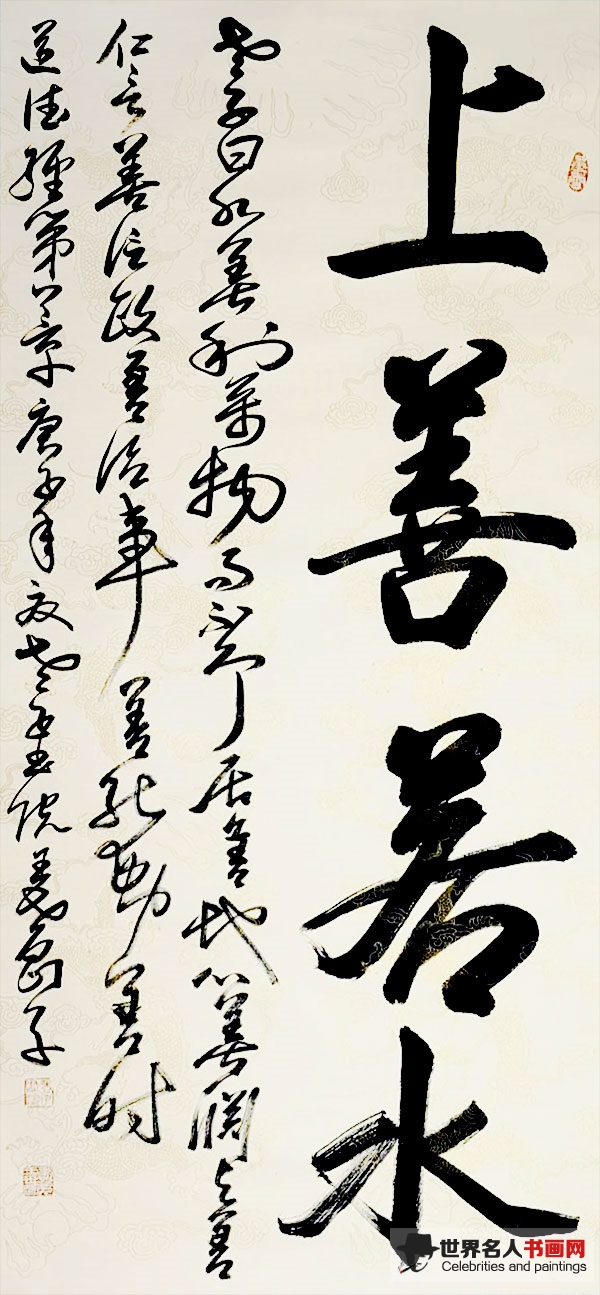 上善若水
老子曰水善利萬物而不争居善地心善淵与善
仁言善信政善治事善能動善时
道德經第八章庚子年夏老子書院
世界名人书画网
Celebrities and paintings